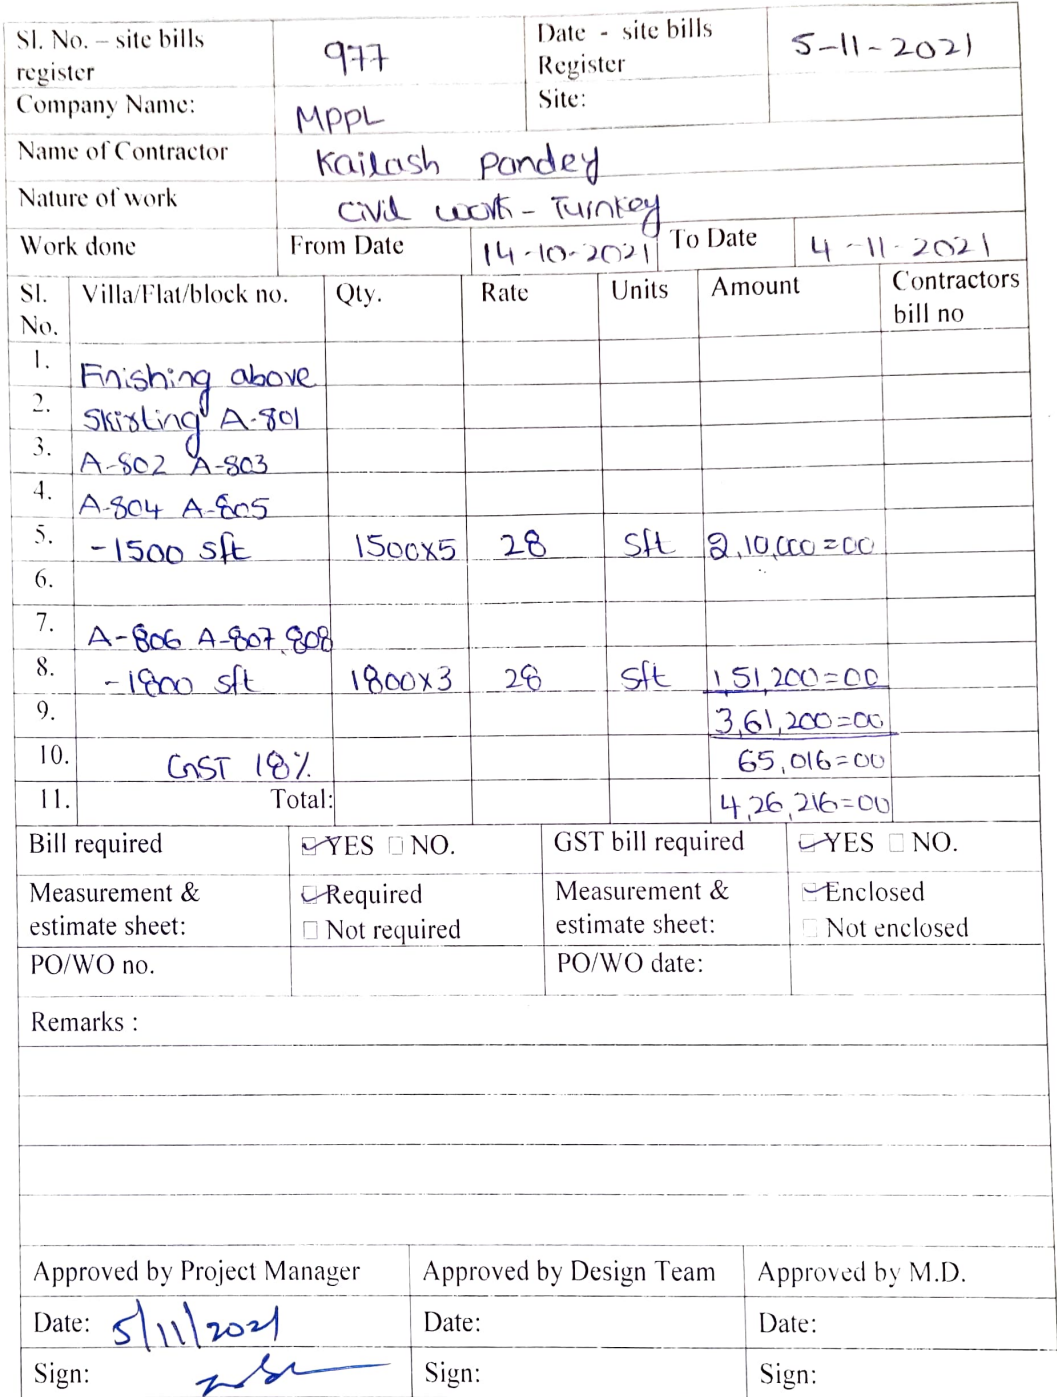 Sl. No. – site bills register 977 Date - site bills Register 5-11-2021
Company Name: MPPL Site:
Name of Contractor Kailash pandey
Nature of work civil work - Turnkey
Work done From Date 14-10-2021 To Date 4-11-2021
Sl. No. Villa/Flat/block no. Qty. Rate Units Amount Contractors bill no
1. Finishing above
2. Skirting A-801
3. A-802 A-803
4. A-804 A-805
5. -1500 sft 1500x5 28 Sft 2,10,000=00
6.
7. A-806 A-807, 808
8. -1800 sft 1800x3 28 Sft 1,51,200=00
9. 3,61,200=00
10. GST 18% 65,016=00
11. Total: 4,26,216=00
Bill required ☑YES ☐NO. GST bill required ☑YES ☐NO.
Measurement & estimate sheet: ☑Required ☐Not required Measurement & estimate sheet: ☑Enclosed ☐Not enclosed
PO/WO no. PO/WO date:
Remarks :
Approved by Project Manager Approved by Design Team Approved by M.D.
Date: 5/11/2021 Date: Date:
Sign: Sign: Sign: